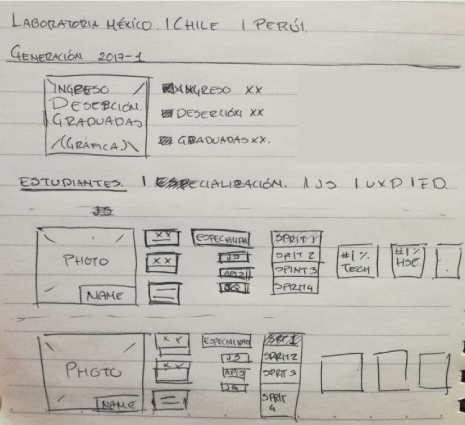 LABORATORIA MÉXICO | CHILE | PERÚ|.
GENERACIÓN 2017-1
INGRESO
DESERCIÓN.
GRADUADAS
(GRÁFICA)
INGRESO XX
DESERCIÓN XX
GRADUADAS XX.
ESTUDIANTES. | ESPECIALIZACIÓN. | JS | UXD | FD
JS
PHOTO
NAME
XX
XX
ESPECIALIDAD
JS
API'S
JQ
SPRIT 1
SPRIT 2
SPINT 3
SPRIT 4
#| %
TECH
#| %
HSE
PHOTO
NAME
XX
XX
ESPECIALIDAD
JS
API'S
JQ
SPRIT 2
SPRIT 3
SPRIT
4